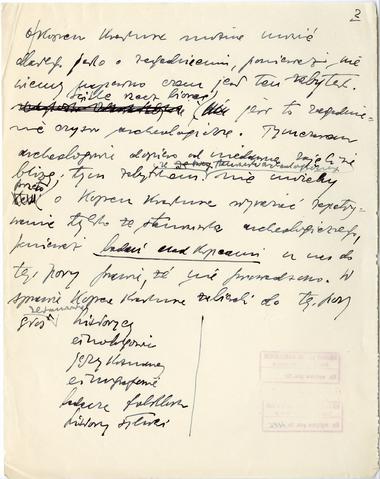 2
o Kopcu Krakusa można mówić
dlatego jako o zagadnieniu, ponieważ nie
wiemy naprawdę czem jest ten zabytek.
Ściśle rzecz biorąc
jest to zagadnie-
nie czysto archeologiczne. Tymczasem
archeologowie dopiero od niedawna zajęli się
ze swego stanowiska archeologicznego
bliżej tym zabytkiem.
o Kopcu Krakusa wyrazić zapatry-
wanie tylko ze stanowiska archeologicznego,
ponieważ badań nad Kopcami u nas do
tej pory prawie, że nie prowadzono. W
sprawie Kopca Krakusa zabierali do tej pory
głos
historycy
etnologowie
językoznawcy
etnografowie
badacze folkloru
historycy sztuki